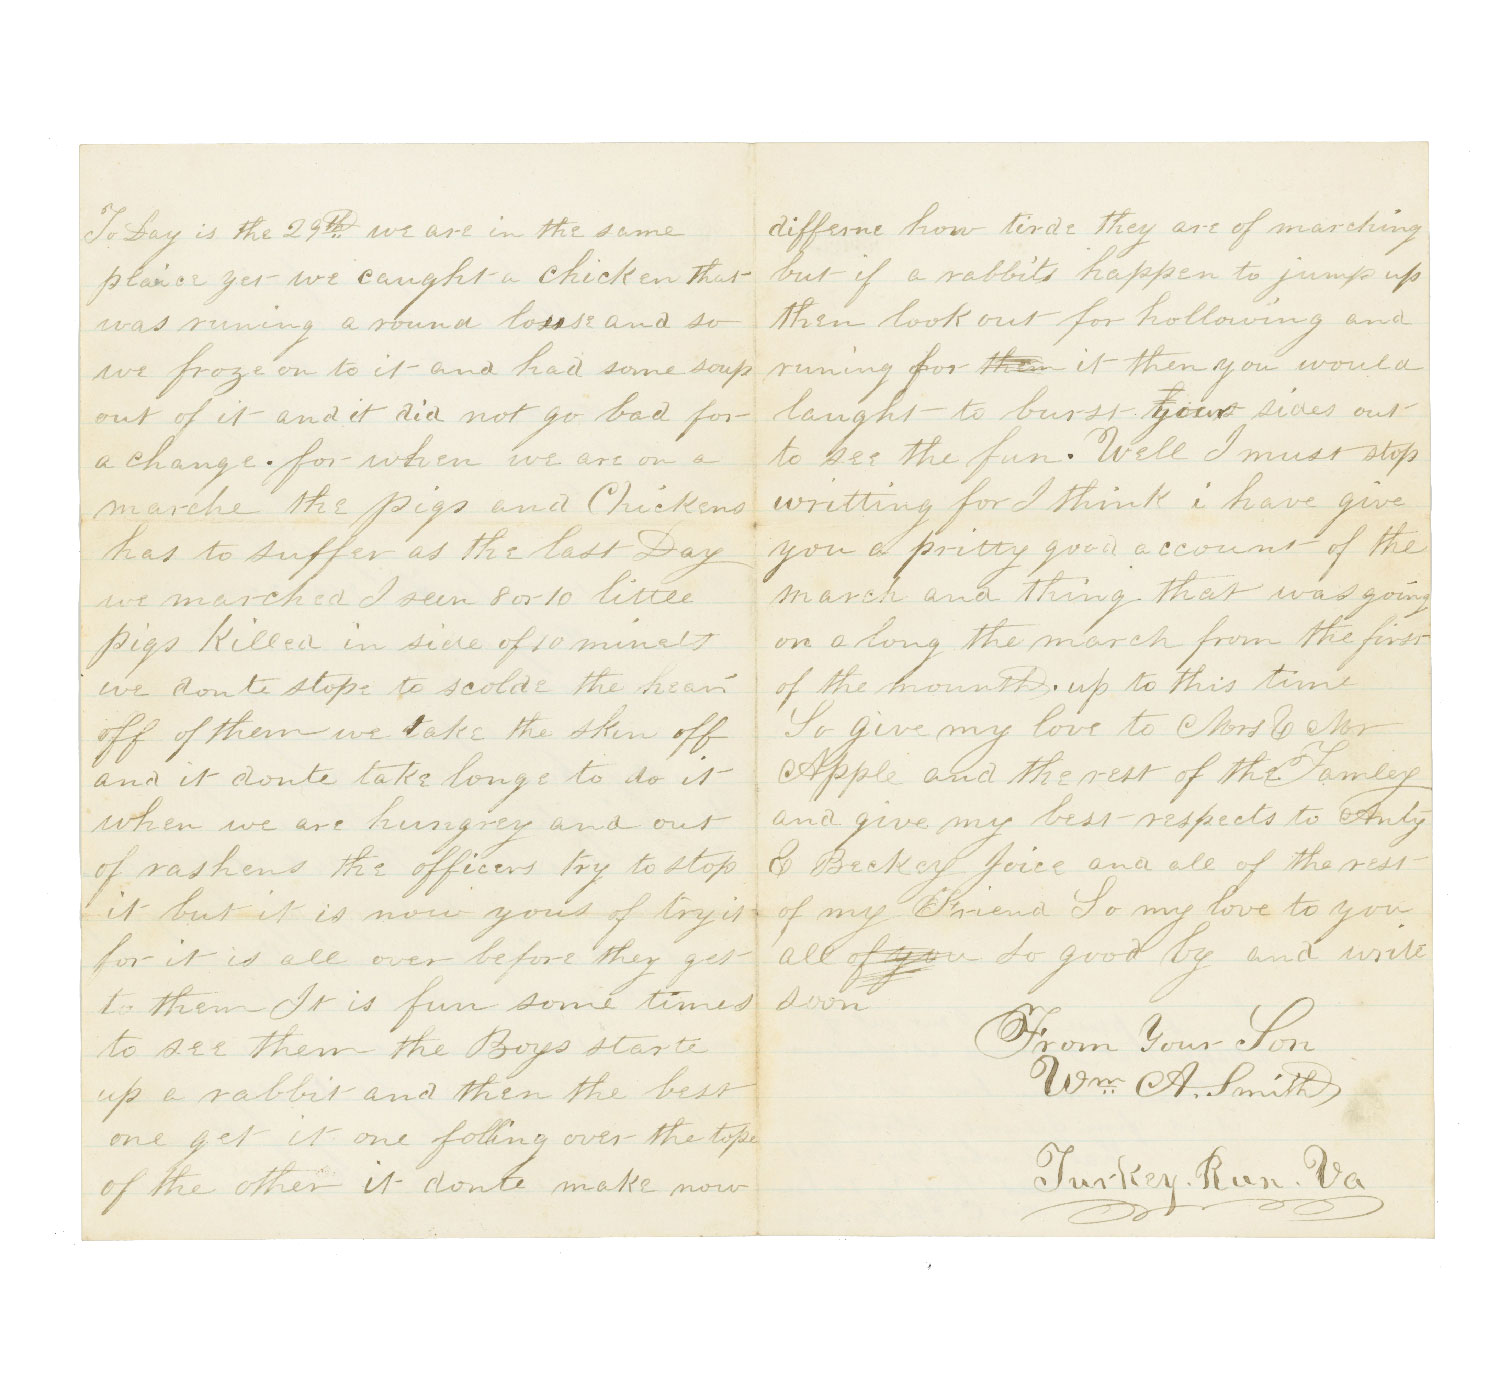 To Day is the 29th we are in the same
plaice yet we caught a chicken that
was runing a round losse and so
we froze on to it and had some soup
out of it and it did not go bad for
a change. for when we are on a
marche the pigs and Chickens
has to suffer as the last Day
we marched I seen 8 or 10 little
pigs Killed in side of 10 minets
we donte stope to scolde the hear
off of them we take the skin off
and it donte take longe to do it
when we are hungrey and out
of rashens the officers try to stop
it but it is now yous of try it
for it is all over before they get
to them It is fun some times
to see them the Boys starte
up a rabbit and then the best
one get it one folling over the tope
of the other it donte make now
differne how tirde they are of marching
but if a rabbits happen to jump up
then look out for hollowing and
runing for them it then you would
laught to burst your sides out
to see the fun. Well I must stop
writting for I think i have give
you a pritty good account of the
march and thing that was going
on a long the march from the first
of the mounth. up to this time
So give my love to Mrs & Mr
Apple and the rest of the Famley
and give my best respects to
& Beckey Joice and all of the rest
of my Friend So my love to you
all of you So good by and write
soon
From Your Son
Wm. A. Smith
Turkey. Run. Va